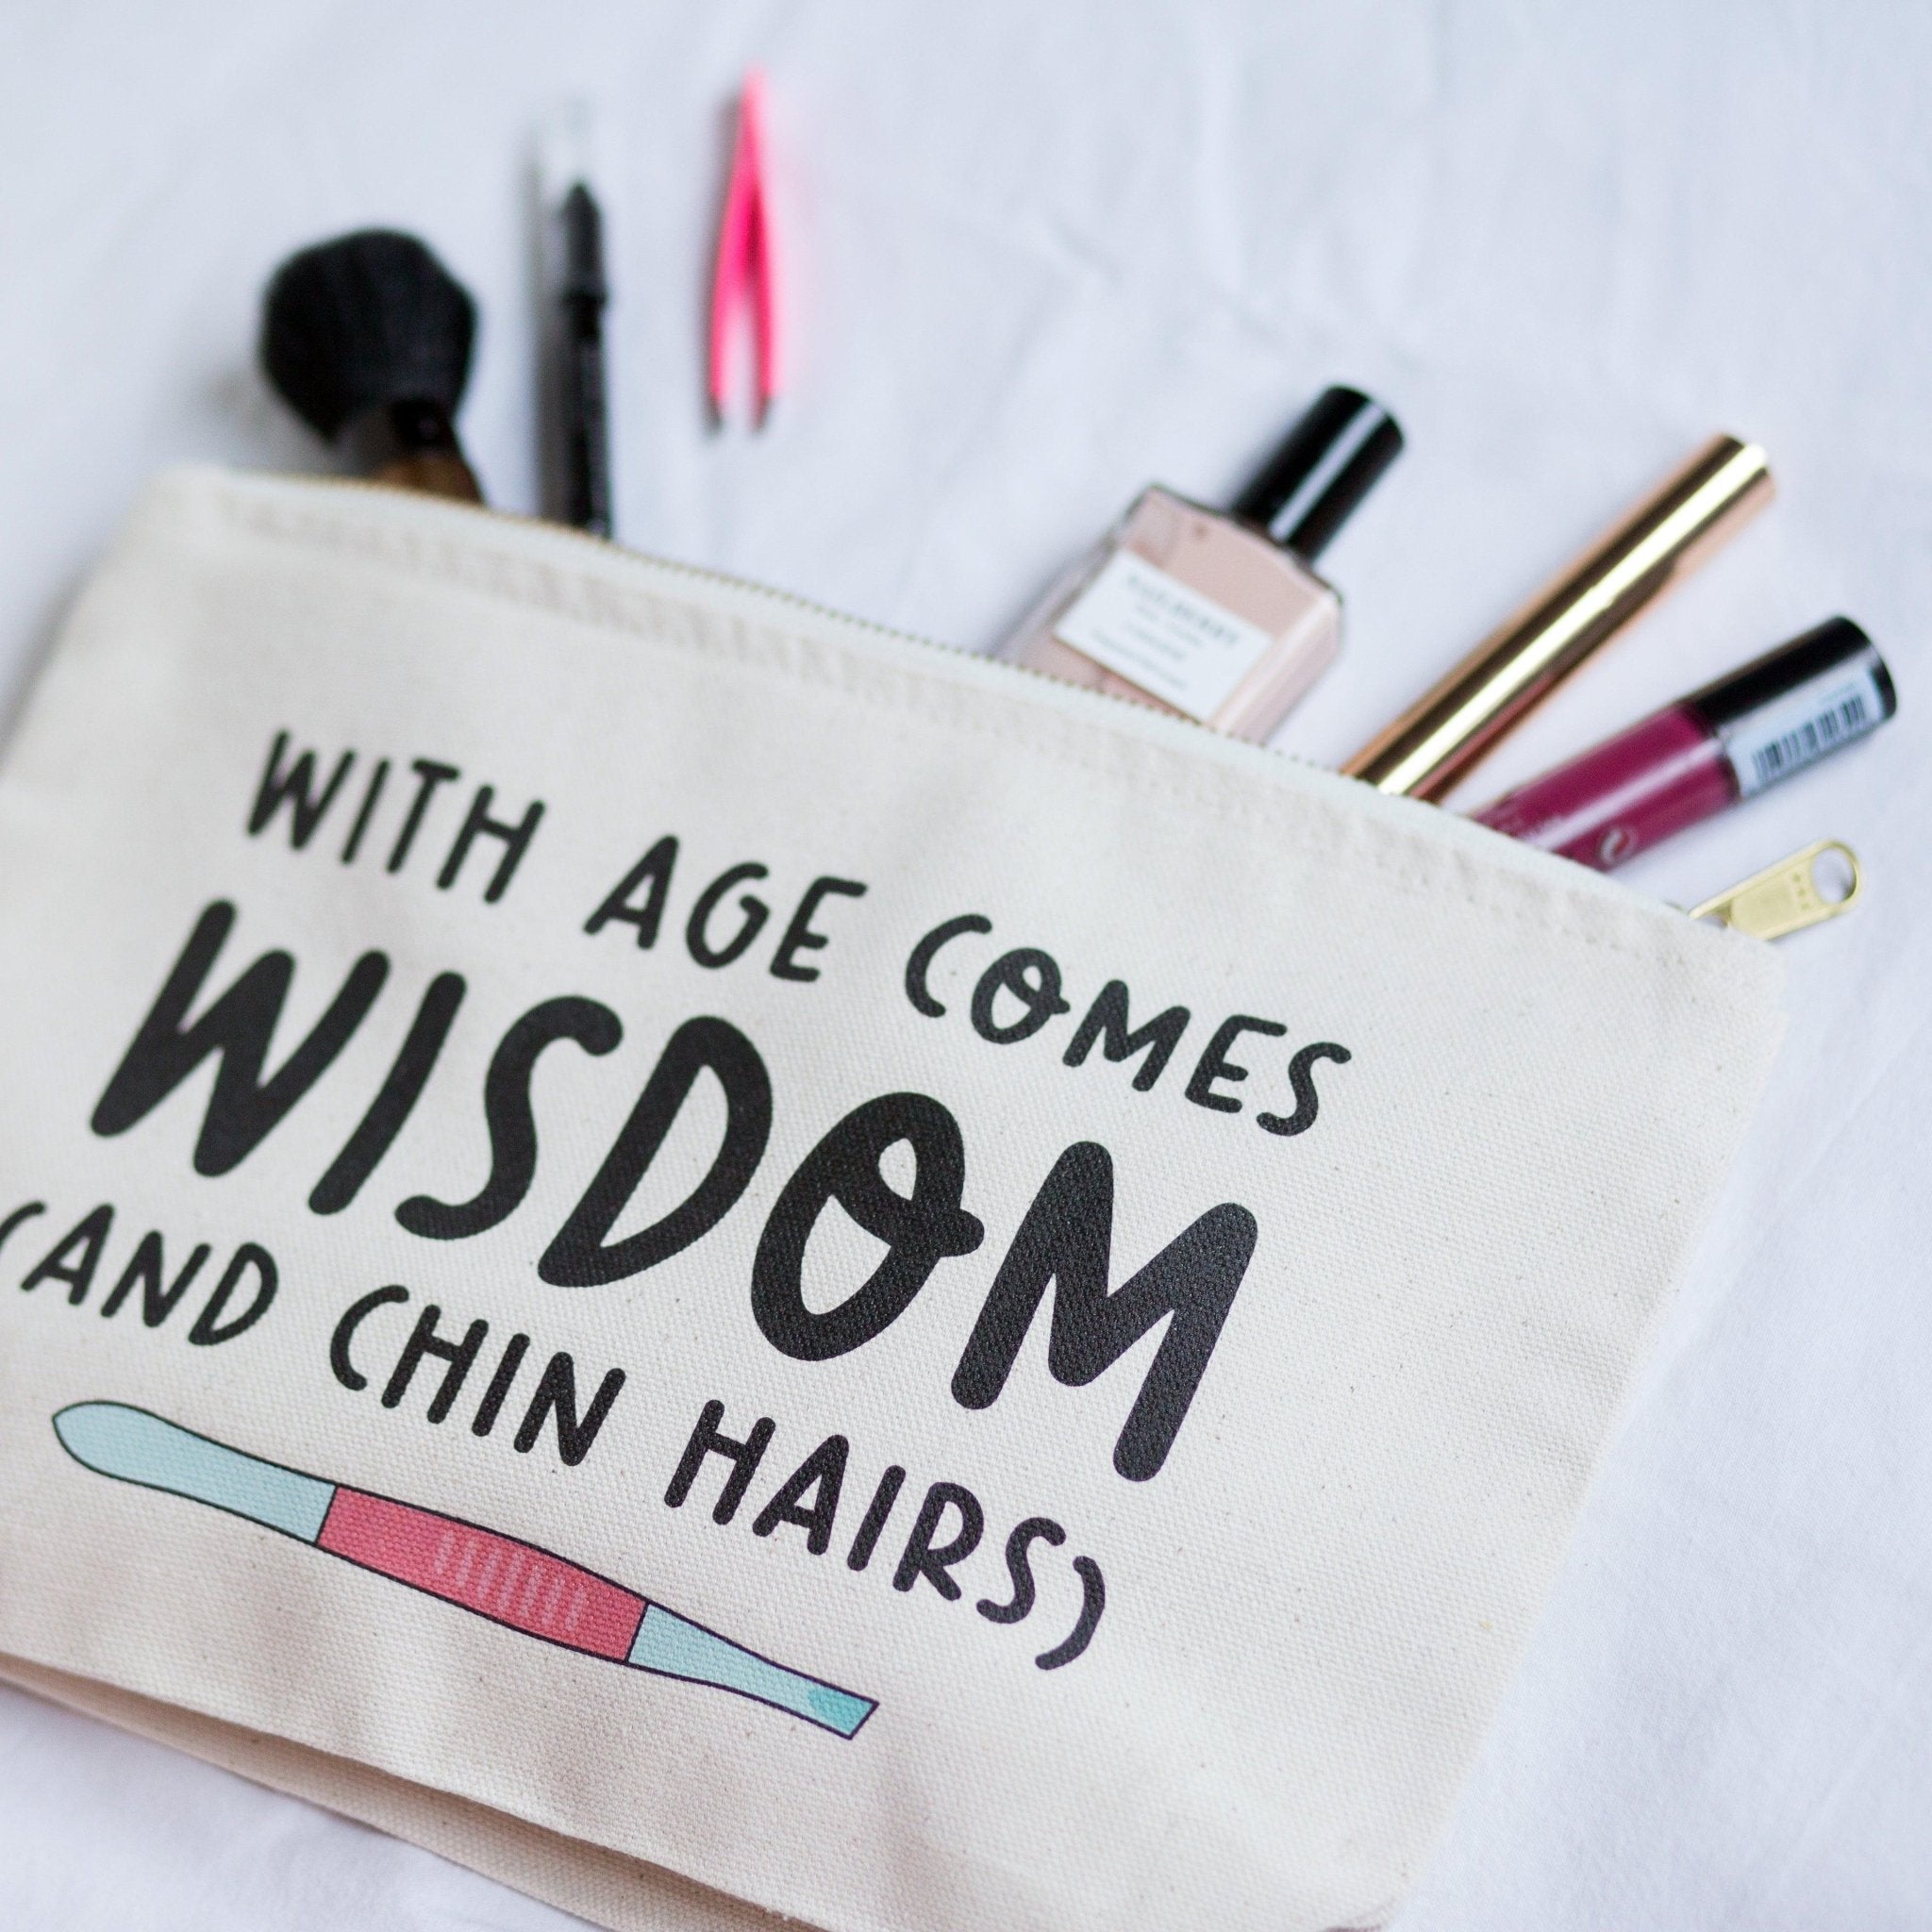 WITH AGE COMES
WISDOM
(AND CHIN HAIRS)